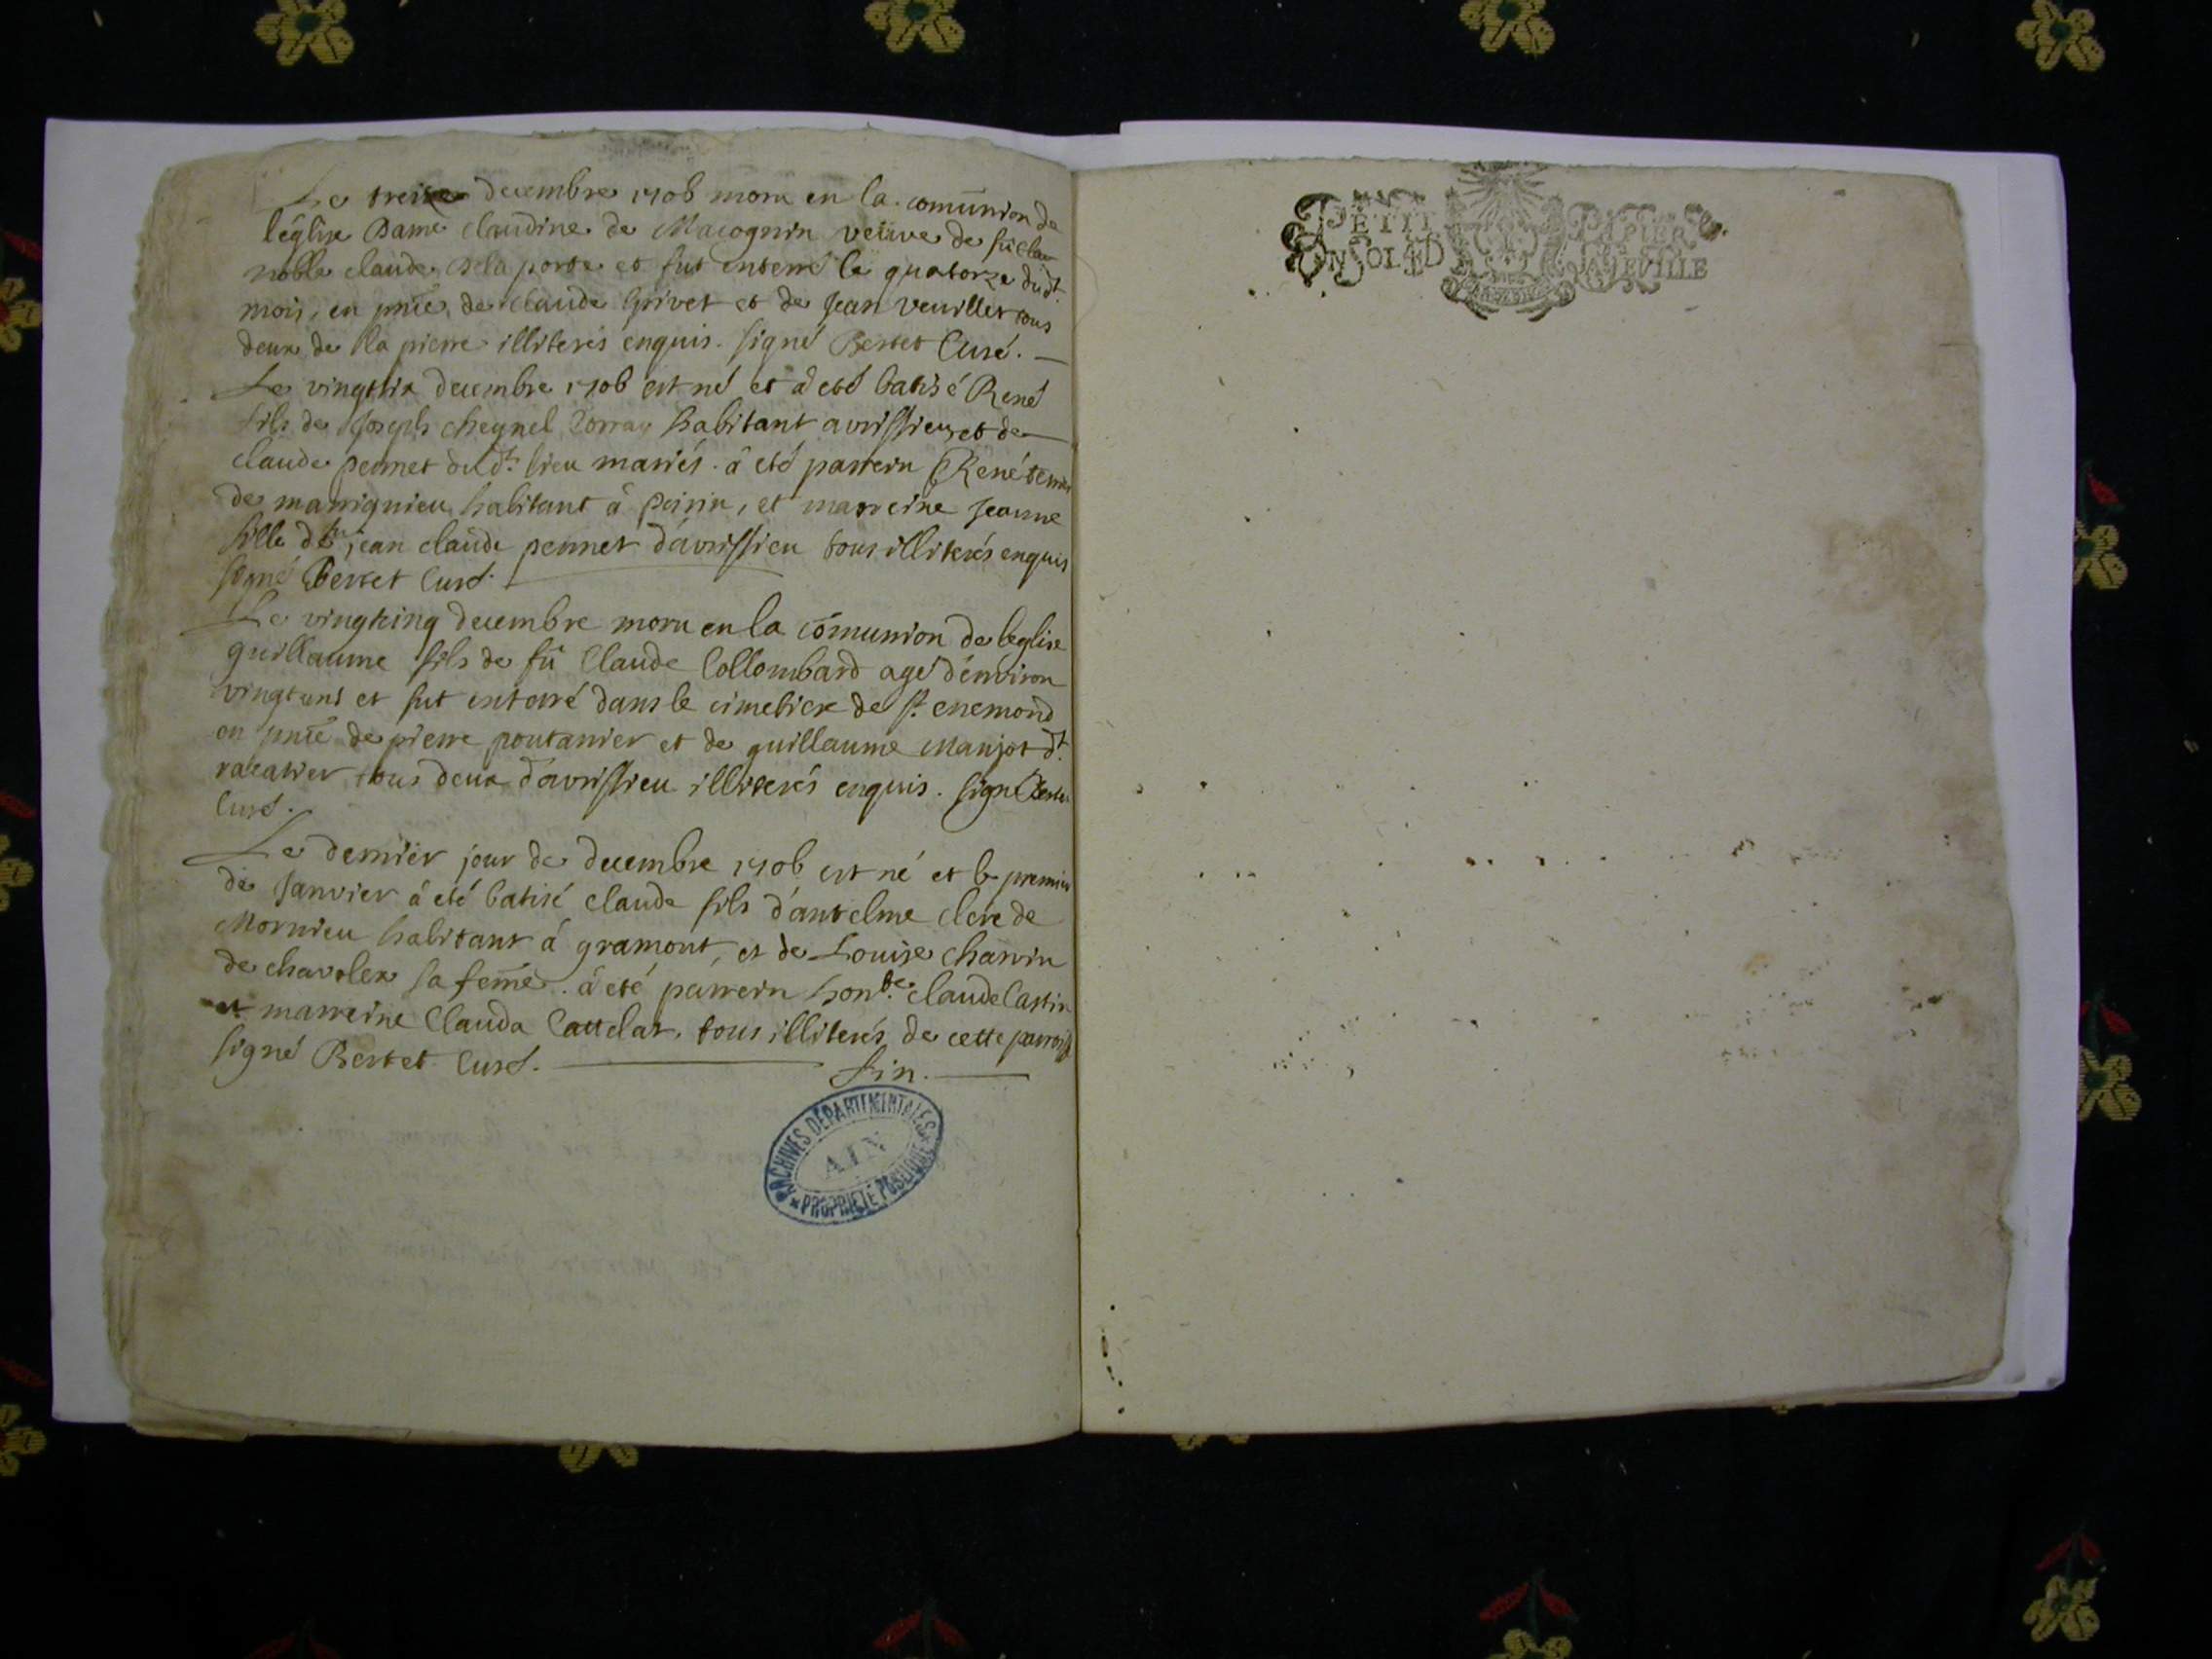 Le treize decembre 1706 moru en la comūnion de
l'église Dame claudine de Macognin veüve de fû
noble claude dela porte et fut enterré le quatorze dud.t
mois, en pnce de claude Grivet et de Jean veuillet tous
deux de la pierre illiterés enquis. signé Bertet Curé.
Le vingtsix decembre 1706 est né et a eté batisé René
fils de Joseph cheynel habitant avrissieu et de
claude pernet dud.t lieu mariés. a eté parrein René
de marignieu habitant à peirin, et marreine Jeanne
fille de jean claude pernet d'avrissieu tous illiterés enquis
signé Bertet Curé.
Le vingtcinq decembre moru en la comunion de leglise
guillaume fils de fû Claude Collombard agé d'environ
vingt ans et fut enterré dans le cimetiere de st enemond
en pnce de pierre poutanier et de guillaume Manjot d.t
tous deux d'avrissieu illiterés enquis. signé Bertet
Curé.
Le dernier jour de decembre 1706 est né et le premier
de Janvier à eté batisé claude fils d'antelme clerc de
Mornieu habitant à gramont, et de Louise charvin
de chavolex sa feme. à eté parrein hon.ble claude Castin
et marreine Clauda Cattelat, tous illiterés de cette parroisse
signé Bertet Curé.
fin.
ARCHIVES DÉPARTEMENTALES
AIN
* PROPRIÉTÉ PUBLIQUE *
PETIT PAPIER
UN SOL 4 D LA FEUILLE